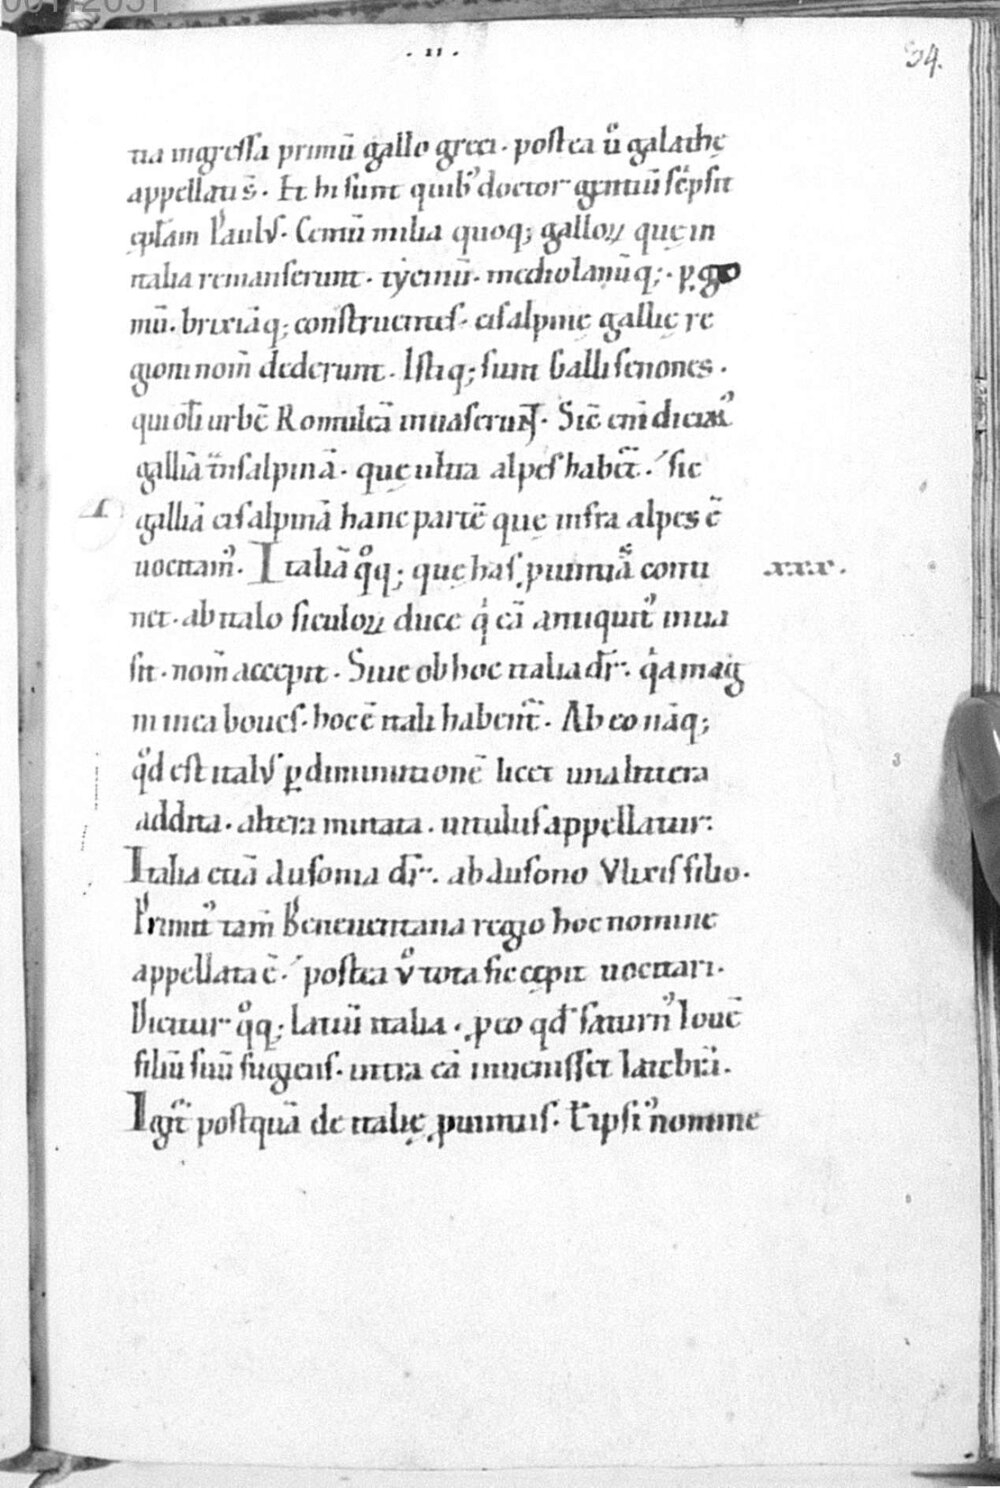 00112031
. II .
34.
tia ingressa primū gallo greci. postea u̾ galathę
appellati s̄. Et hi sunt quib᾽ doctor gentiū sc̄psit
ępl̄am Paulus. Centū milia quoq; galloꝝ quę in
italia remanserunt. tycinū. mediolanūq;. pgo
mū. brixiāq; construentes. cisalpinę gallię re
gioni nom̄ dederunt. Istiq; sunt Galli senones.
qui oli urbē Romuleā inuaserunt. Sic̄ eni dicim᾽
galliā tnsalpinā. quę ultra alpes habet̄. sic
galliā cisalpinā hanc partē quę infra alpes ē
uocitam᾽. Italiā qͦq; quę has puintias conti
xxx.
net. ab italo siculoꝝ duce q eā antiquit᾽ inua
sit. nom̄ accepit. Siue ob hoc italia dr̄. qa mag
ni in ea boues. hoc ē itali habent̄. Ab eo nāq;
qd̄ est italus ꝑ diminutionē licet una littera
addita. altera mutata. uitulus appellatur.
Italia etiā ausonia dr̄. ab ausono Vlixis filio.
Primit᾽ tam̄ Beneuentana regio hoc nomine
appellata ē. postea u̾ tota sic cępit uocitari.
Dicitur qͦq; latiū italia. ꝓ eo qd̄ saturn᾽ Iouē
filiū suū fugiens. intra eā inuenisset latebrā.
Igit̄ postquā de italię puintiis. t̄ ipsi᾽ nomine